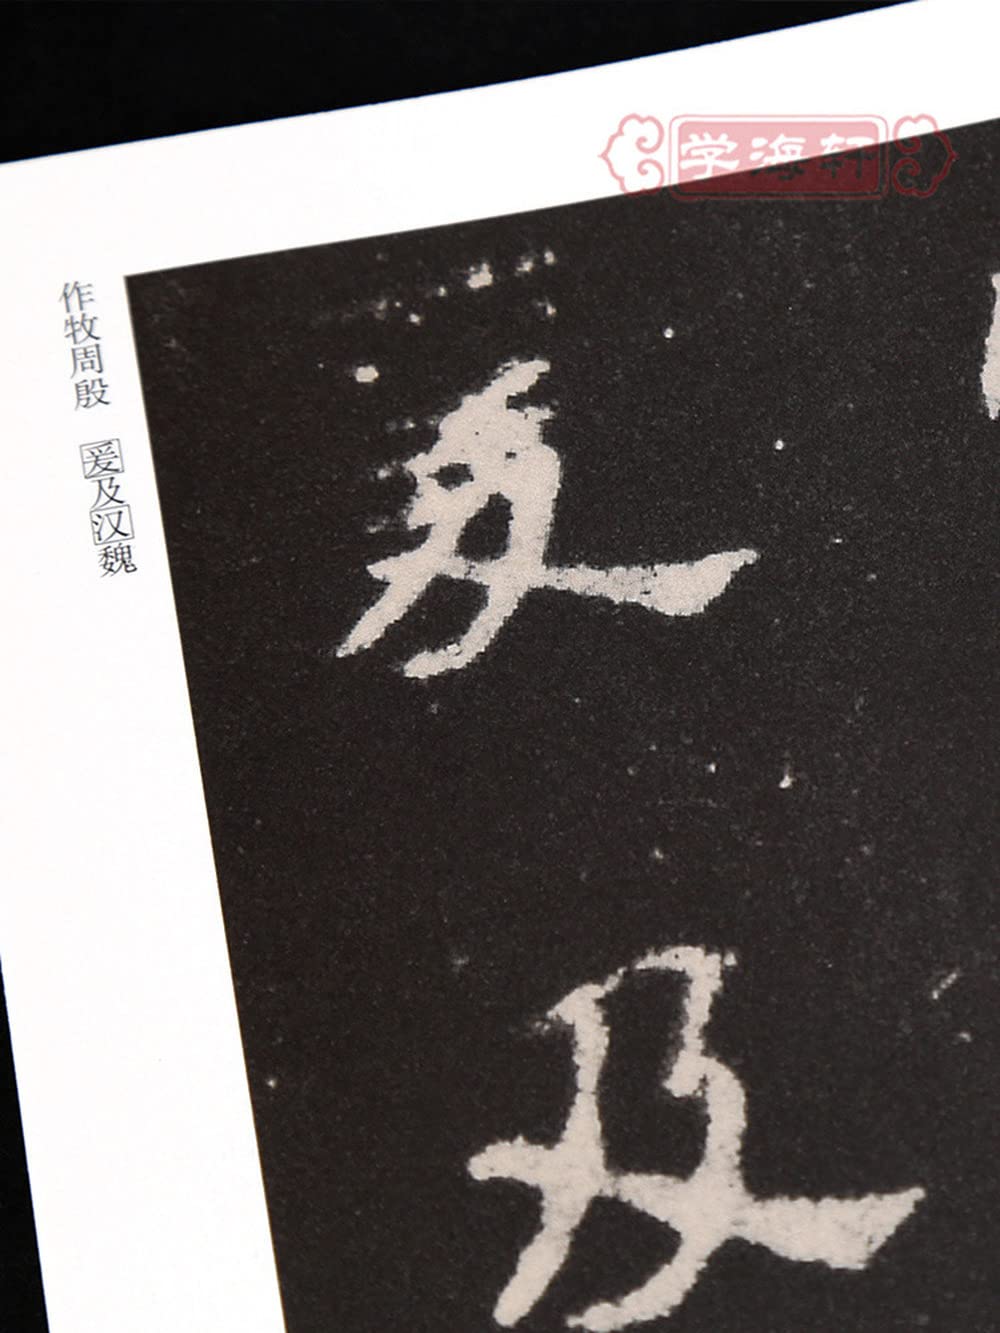 学海轩
作牧周殷 爰及汉魏
爰
及